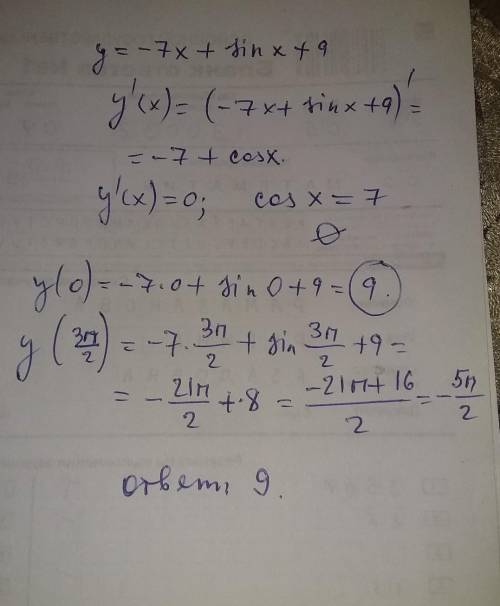 y = -7x + sin x + 9
y'(x) = (-7x + sin x + 9)' =
= -7 + cosx.
y'(x) = 0; cos x = 7
∅
y(0) = -7·0 + sin 0 + 9 = 9.
y(3π/2) = -7·3π/2 + sin 3π/2 + 9 =
= -21π/2 + 8 = (-21π + 16)/2 = -5π/2
ответ: 9.